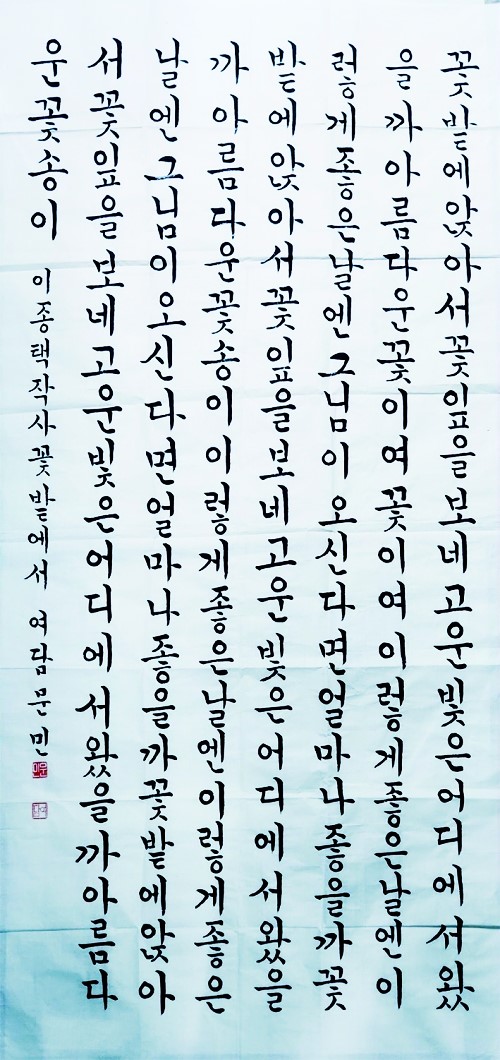 꽃밭에앉아서꽃잎을보네고운빛은어디에서왔
을까아름다운꽃이여꽃이여이렇게좋은날엔이
렇게좋은날엔그님이오신다면얼마나좋을까꽃
밭에앉아서꽃잎을보네고운빛은어디에서왔을
까아름다운꽃송이이렇게좋은날엔이렇게좋은
날엔그님이오신다면얼마나좋을까꽃밭에앉아
서꽃잎을보네고운빛은어디에서왔을까아름다
운꽃송이 이종택작사꽃밭에서 여담문민